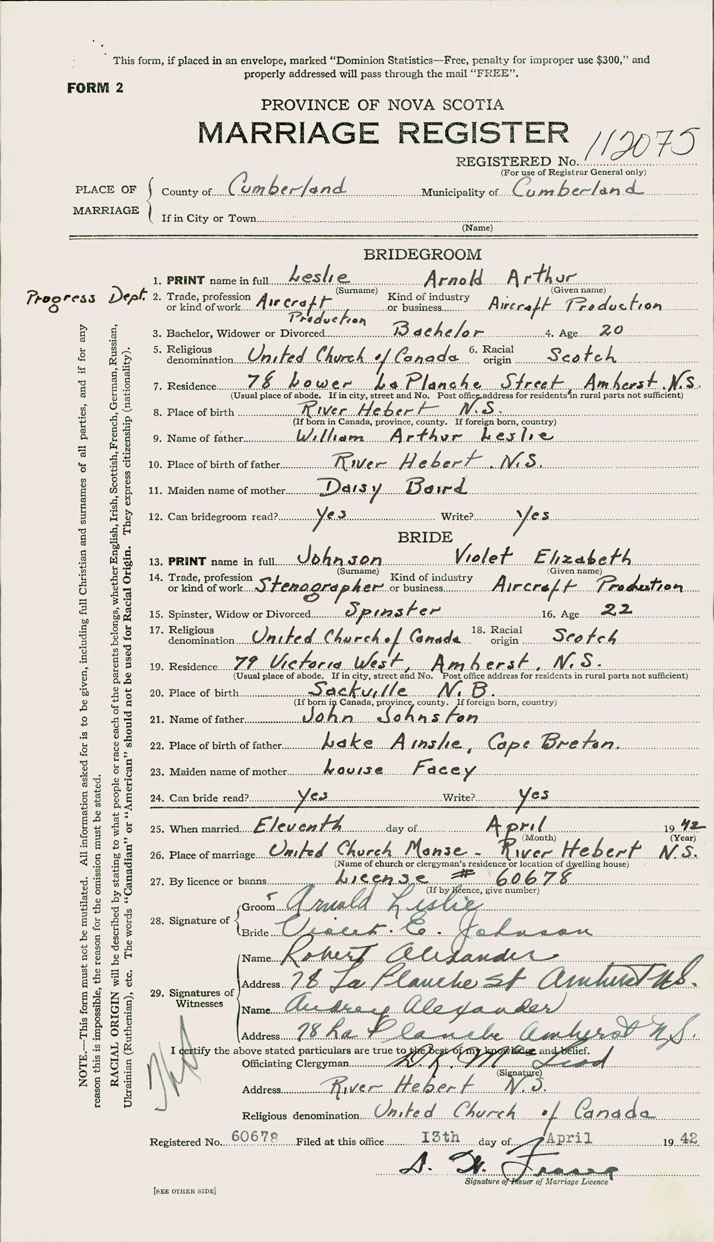 This form, if placed in an envelope, marked "Dominion Statistics—Free, penalty for improper use $300," and
properly addressed will pass through the mail "FREE".
FORM 2
PROVINCE OF NOVA SCOTIA
MARRIAGE REGISTER
REGISTERED No. 112075
(For use of Registrar General only)
PLACE OF MARRIAGE
County of Cumberland Municipality of Cumberland
If in City or Town
(Name)
BRIDEGROOM
1. PRINT name in full Leslie Arnold Arthur
(Surname) (Given name)
Progress Dept.
2. Trade, profession or kind of work Aircraft Production Kind of industry or business Aircraft Production
3. Bachelor, Widower or Divorced Bachelor 4. Age 20
5. Religious denomination United Church of Canada 6. Racial origin Scotch
7. Residence 78 Lower La Planche Street, Amherst N.S.
(Usual place of abode. If in city, street and No. Post office address for residents in rural parts not sufficient)
8. Place of birth River Hebert N.S.
(If born in Canada, province, county. If foreign born, country)
9. Name of father William Arthur Leslie
10. Place of birth of father River Hebert N.S.
11. Maiden name of mother Daisy Baird
12. Can bridegroom read? Yes Write? Yes
BRIDE
13. PRINT name in full Johnson Violet Elizabeth
(Surname) (Given name)
14. Trade, profession or kind of work Stenographer Kind of industry or business Aircraft Production
15. Spinster, Widow or Divorced Spinster 16. Age 22
17. Religious denomination United Church of Canada 18. Racial origin Scotch
19. Residence 79 Victoria West, Amherst, N.S.
(Usual place of abode. If in city, street and No. Post office address for residents in rural parts not sufficient)
20. Place of birth Sackville N.B.
(If born in Canada, province, county. If foreign born, country)
21. Name of father John Johnston
22. Place of birth of father Lake Ainslie, Cape Breton.
23. Maiden name of mother Louise Facey
24. Can bride read? Yes Write? Yes
25. When married Eleventh day of April 1942
(Month) (Year)
26. Place of marriage United Church Manse - River Hebert N.S.
(Name of church or clergyman's residence or location of dwelling house)
27. By licence or banns License # 60678
(If by licence, give number)
28. Signature of
Groom Arnold Leslie
Bride Violet E. Johnson
29. Signatures of Witnesses
Name Robert Alexander
Address 78 La Planche St Amherst N.S.
Name Audrey Alexander
Address 78 La Planche Amherst N.S.
I certify the above stated particulars are true to the best of my knowledge and belief.
Officiating Clergyman
(Signature)
Address River Hebert N.S.
Religious denomination United Church of Canada
Registered No. 60678 Filed at this office 13th day of April 1942
Signature of Issuer of Marriage Licence
[SEE OTHER SIDE]
NOTE.—This form must not be mutilated. All information asked for is to be given, including full Christian and surnames of all parties, and if for any
reason this is impossible, the reason for the omission must be stated.
RACIAL ORIGIN will be described by stating to what people or race each of the parents belongs, whether English, Irish, Scottish, French, German, Russian,
Ukrainian (Ruthenian), etc. The words "Canadian" or "American" should not be used for Racial Origin. They express citizenship (nationality).